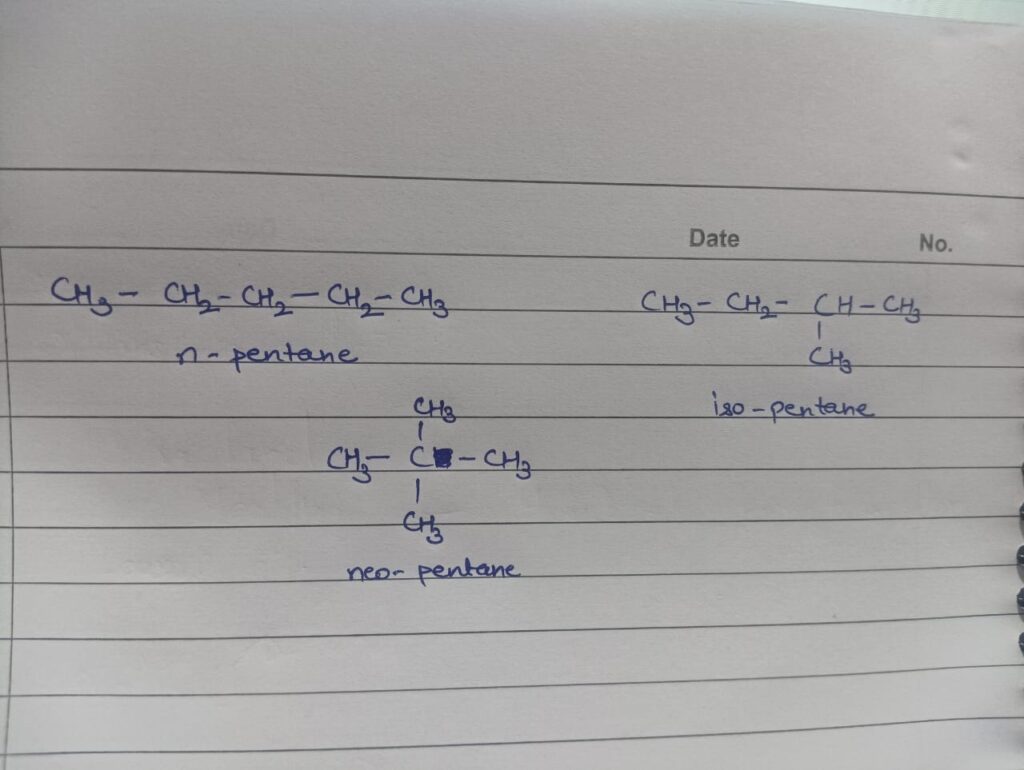 Date No.
CH3 - CH2 - CH2 - CH2 - CH3
n - pentane
CH3 - CH2 - CH - CH3
|
CH3
iso - pentane
CH3
|
CH3 - C - CH3
|
CH3
neo - pentane